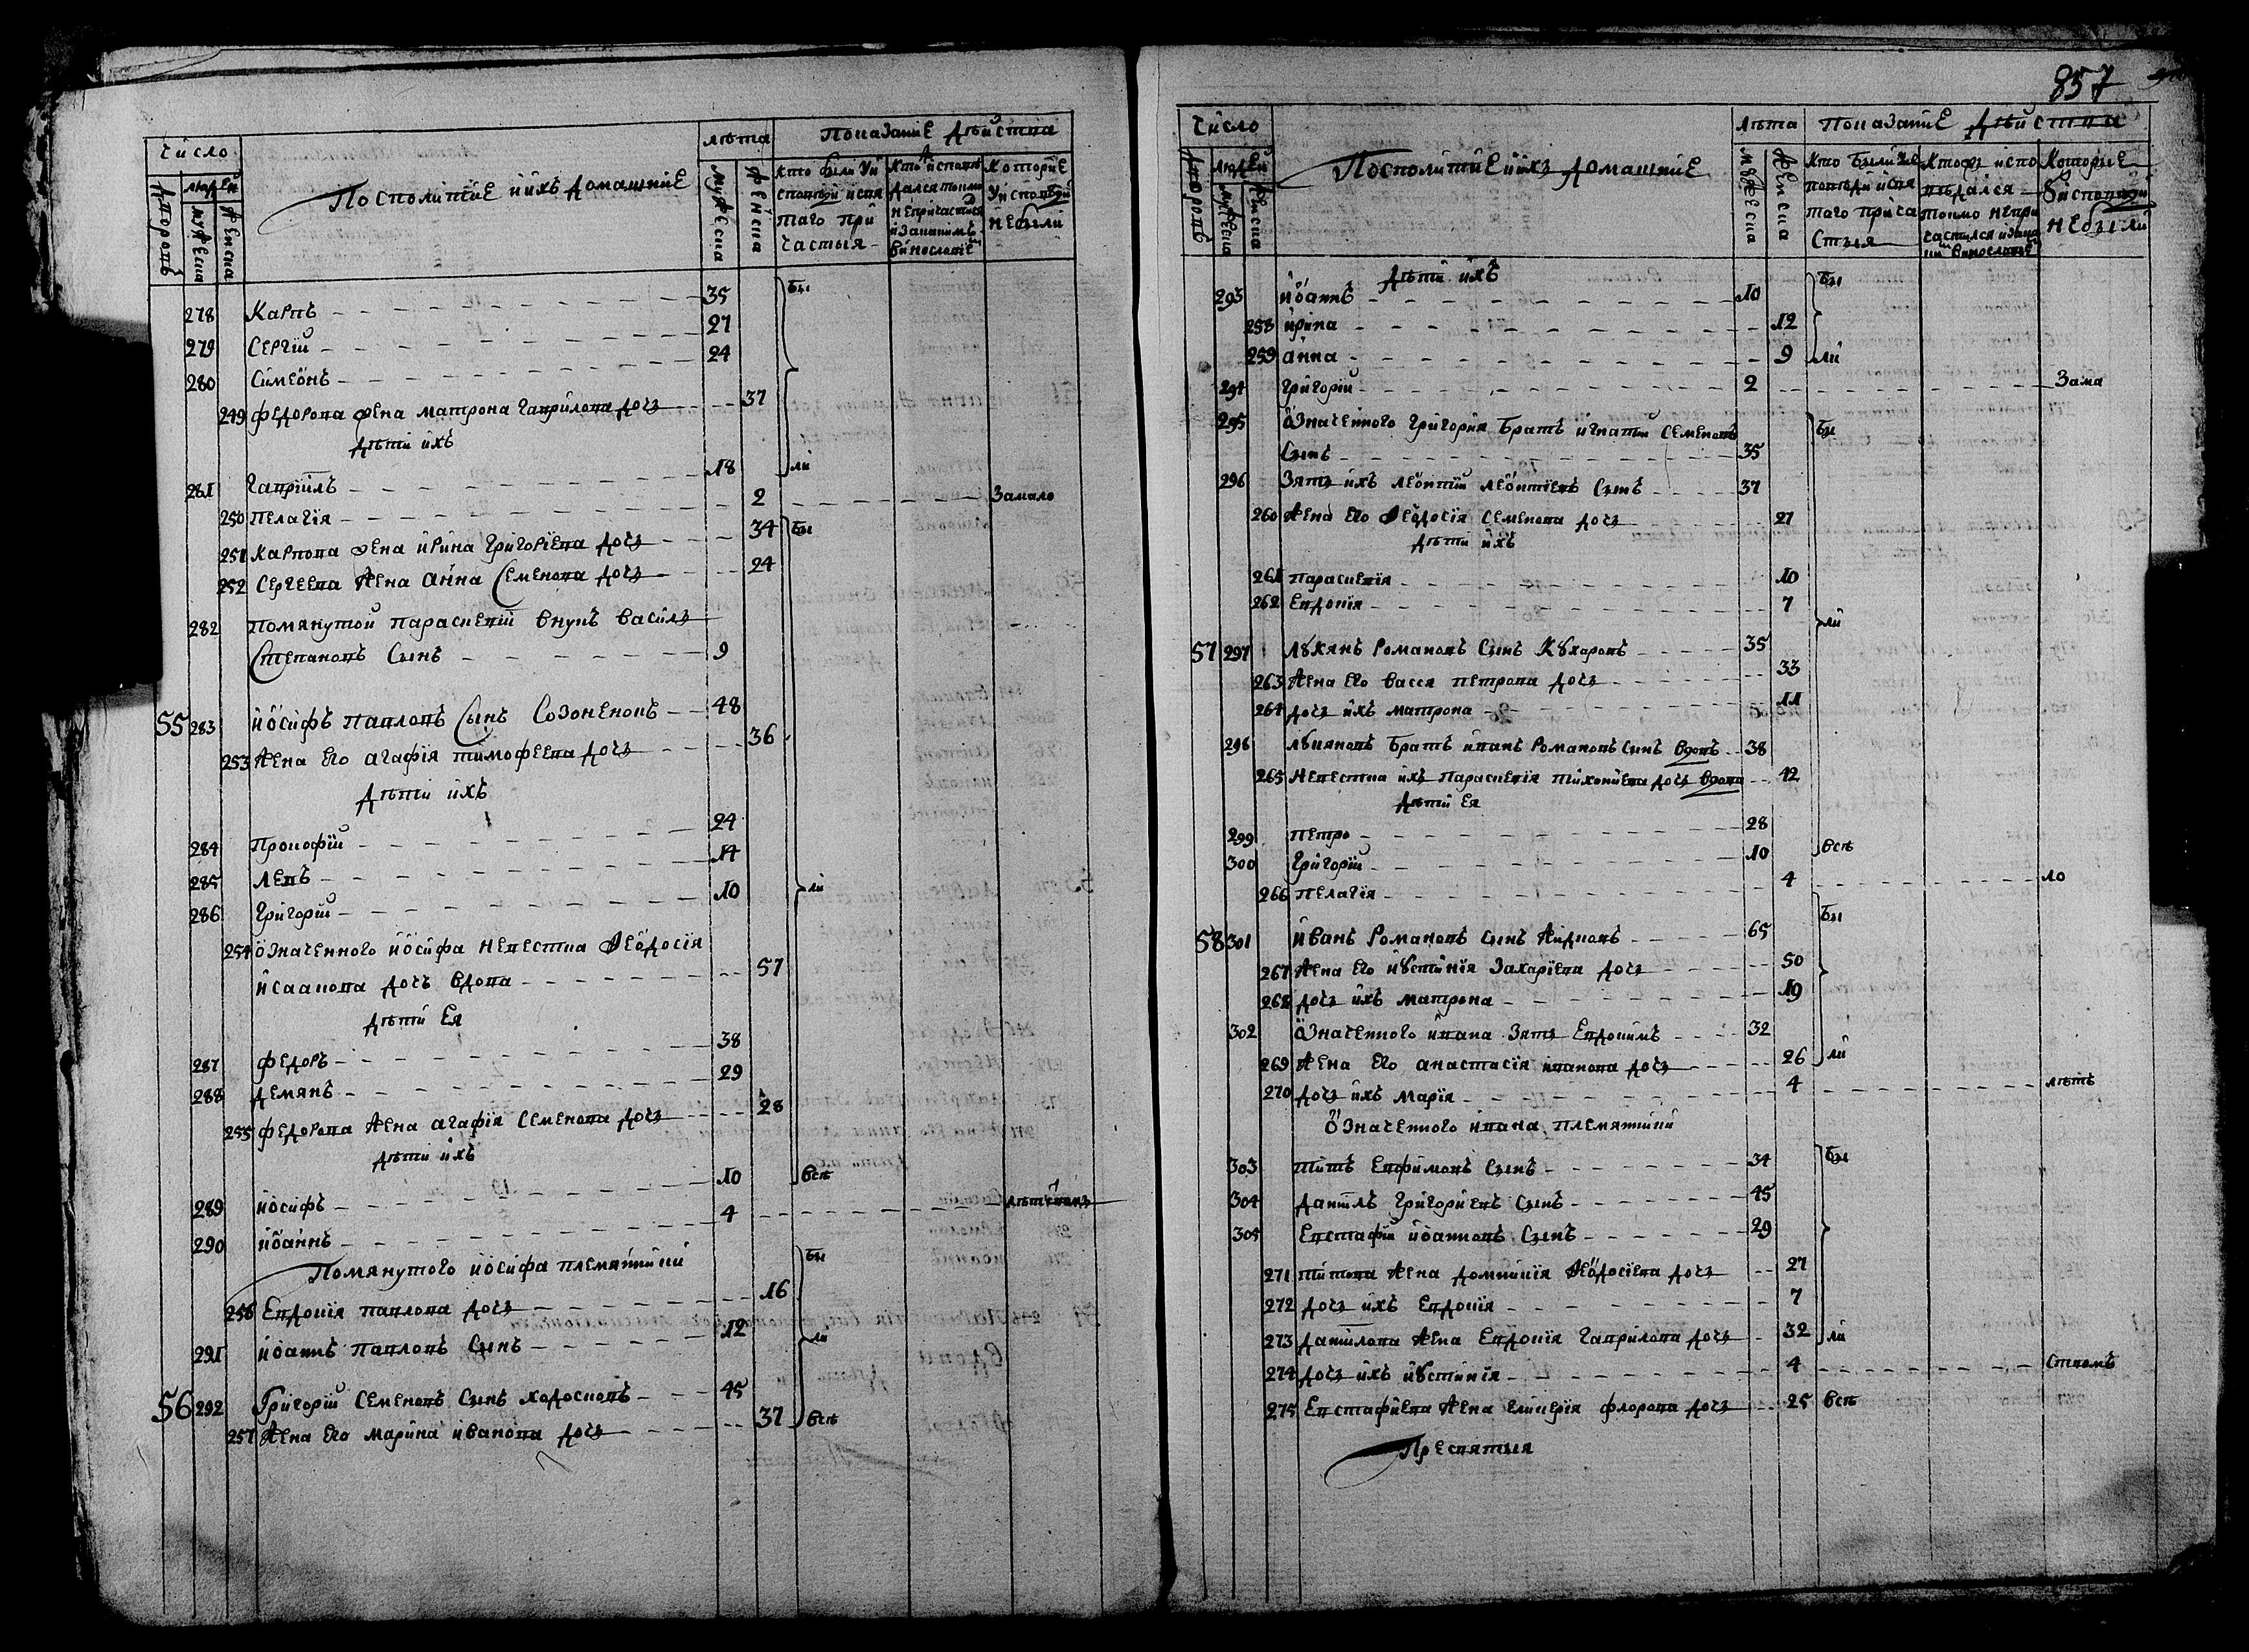 857
Число
Посполитие и ихъ домашние
лѣта
Показание действа
дворовъ
людей
мужеска
женска
мужеска
женска
кто были у исповѣди и святаго причастыя
Кто исповѣдался токмо не причастился и за какимъ винословиемъ
Которие у исповѣди не были
278 Карпъ 35 бы
279 Сергій 27
280 Симеонъ 24
249 Федорова жена Матрона Гаврилова дочъ 37
дѣти ихъ
281 Гавріилъ 18 ли
250 Пелагія 2 За мало
251 Карпова жена Ирина Григоріева дочъ 34 бы
252 Сергеева жена Анна Семенова дочъ 24
282 помянутой Параскевіи внукъ Василъ
Степановъ сынъ 9
55 283 Иосифъ Павловъ Сынъ Созоненокъ 48
253 жена его Агафія Тимофеева дочъ 36
дѣти ихъ
284 Прокофій 24
285 Левъ 14
286 Григорій 10 ли
254 означенного Иосифа невестка Феодосія
Исаакова дочъ вдова 57
дѣти ея
287 Федоръ 38
288 Демянъ 29
255 Федорова жена Агафія Семенова дочъ 28
дѣти ихъ
289 Иосифъ 10 всѣ
290 Иоаннъ 4 лѣтством
Помянутого Иосифа племянники
256 Евдокія Павлова дочъ 16 бы
291 Иоаннъ Павловъ сынъ 12 ли
56 292 Григорій Семеновъ сынъ Ходосковъ 45
257 жена его Марина Иванова дочъ 37 всѣ
Число
Посполитие и ихъ домашние
лѣта
Показание действа
дворовъ
людей
мужеска
женска
мужеска
женска
Кто были у исповѣди и святаго причастыя
Кто исповѣдался токмо не причастился и за каким винословиемъ
Которые у исповѣди не были
дѣти ихъ
293 Иоаннъ 10 бы
258 Ирина 12
259 Анна 9 ли
294 Григорій 2 За ма
295 означенного Григория братъ Игнатій Семеновъ
сынъ 35 бы
296 Зять ихъ Леонтій Леонтіевъ сынъ 37
260 жена его Феодосія Семенова дочъ 27
дѣти ихъ
261 Параскевія 10
262 Евдокія 7 ли
57 297 Лукянъ Романовъ сынъ Кухаровъ 35
263 жена его Васся Петрова дочъ 33
264 дочъ ихъ Матрона 11
298 Лукяновъ братъ Иванъ Романовъ сынъ вдовъ 38
265 невестка ихъ Параскевія Тихонова дочъ вдова 42
дѣти ея
299 Петро 28
300 Григорій 10 всѣ
266 Пелагія 4 ло
58 301 Иванъ Романовъ сынъ Жидковъ 65 бы
267 жена его Иустинія Захаріева дочъ 50
268 дочъ ихъ Матрона 19
302 означенного Ивана зять Евдокимъ 32
269 жена его Анастасія Иванова дочъ 26 ли
270 дочъ ихъ Марія 4 лѣтъ
означенного Ивана племянники
303 Титъ Евфимовъ сынъ 34 бы
304 Даниилъ Григориевъ сынъ 45
305 Евстафій Иоанновъ сынъ 29
271 Титова жена Домникія Феодосіева дочъ 27
272 дочъ ихъ Евдокія 7
273 Данилова жена Евдокія Гаврилова дочъ 32 ли
274 дочъ ихъ Иустинія 4 ством
275 Евстафиева жена Гликерія Флорова дочъ 25 всѣ
Пресвятыя